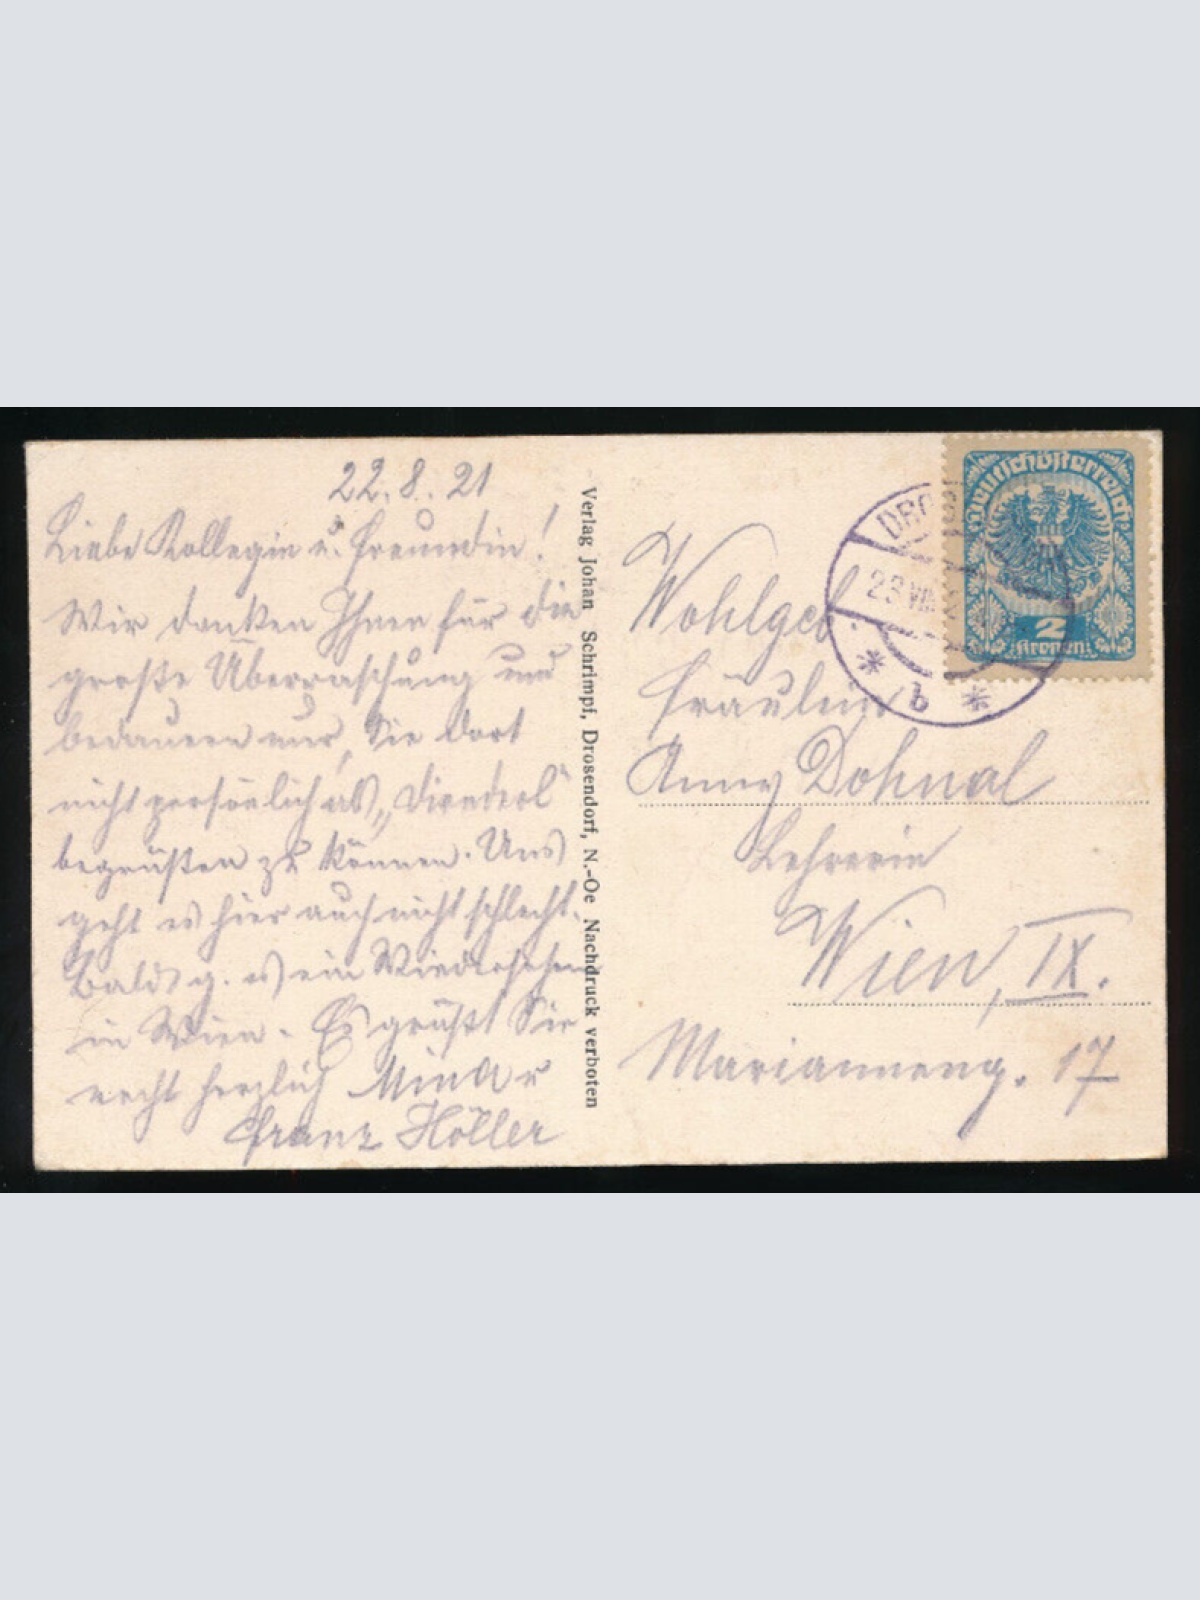 22.8.21
Liebe Kollegin u. Freundin!
Wir danken Ihnen für die
große Überraschung und
bedauern nur, Sie dort
nicht persönlich als „Dirnderl"
begrüßen zu können. Uns
geht es hier auch nicht schlecht.
Bald g. es ein Wiedersehen
in Wien. Es grüßt Sie
recht herzlich Mina u
Franz Höller
Verlag Johan Schrimpf, Drosendorf, N.-Oe Nachdruck verboten
Deutschösterreich
2
Kronen
DRO
23.VIII
* b *
Wohlgeb.
Fräulein
Anny Dohnal
Lehrerin
Wien, IX.
Marianneng. 17